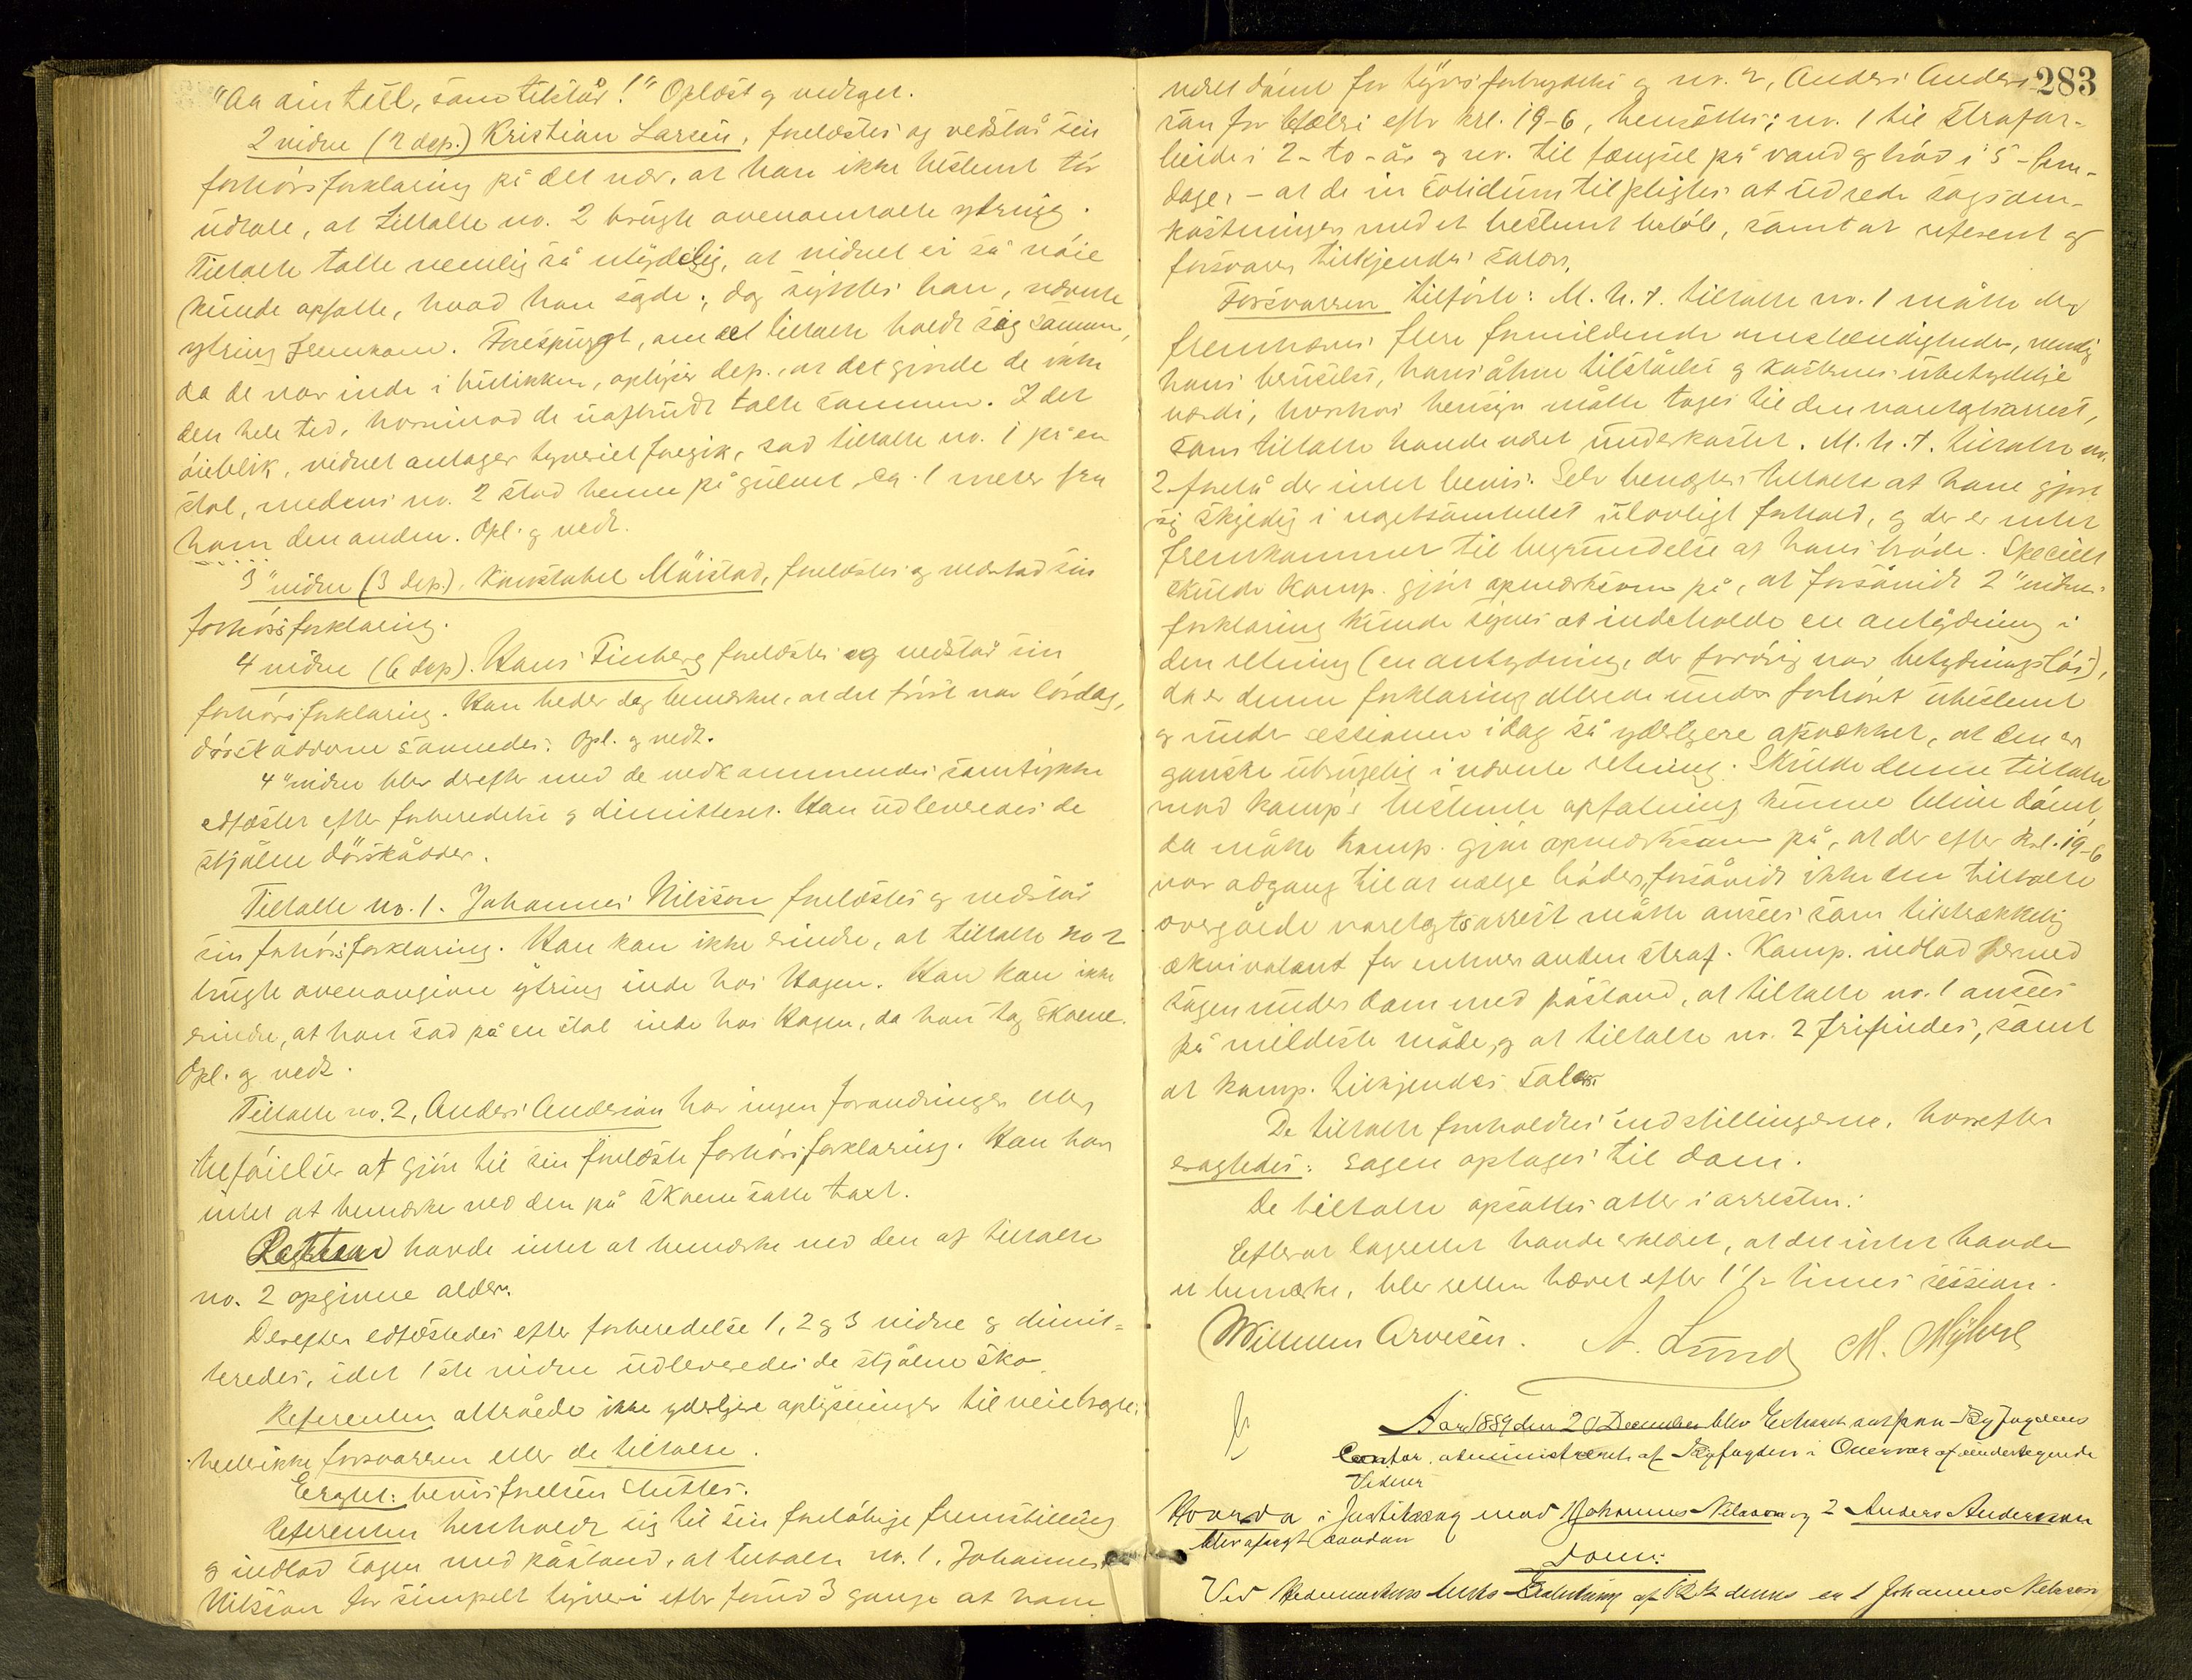 "Aa din tull, som tilstår!" Oplæst og vedtaget.
2 vidne (2 dep.) Kristian Larsen, forelæstes og vedstår sin
forhørsforklaring på det nær, at han ikke bestemt tør
udtale, at tiltalte no. 2 brugte ovenomtalte ytring.
Tiltalte talte nemlig så utydelig, at vidnet ei så nøie
kunde opfatte, hvad han sagde; dog syntes han, nævnte
ytring fremkom. Forespurgt, om de tiltalte holdt sig sammen,
da de var inde i butikken, oplyser dep., at det gjorde de ikke
den hele tid, hvorimod de uafbrudt talte sammen. I det
øieblik, vidnet antager tyveriet foregik, sad tiltalte no. 1 på en
stol, medens no. 2 stod henne på gulvet, ca. 1 meter fra
ham den anden. Opl. og vedt.
3" vidne (3 dep.). Konstabel Mørstad, forelæstes og vedstod sin
forhørsforklaring.
4 vidne (6 dep). Hans Finberg forelæstes og vedstår sin
forhørsforklaring. Han beder dog bemærke, at det først var lørdag,
dørskodderne savnedes. Opl. og vedt.
4" vidne blev derefter med de vedkommendes samtykke
edfæstet efter forberedelse og dimitteret. Han udleveredes de
stjålne dørskådder.
Tiltalte no. 1. Johannes Nilsson forelæstes og vedstår
sin forhørsforklaring. Han kan ikke erindre, at tiltalte no 2
brugte ovenangivne ytring inde hos Hagen. Han kan ikke
erindre, at han sad på en stol inde hos Hagen, da han tog skoene.
Opl. og vedt.
Tiltalte no. 2, Anders Anderson har ingen forandringer eller
tilføielser at gjøre til sin forelæste forhørsforklaring. Han har
intet at bemærke ved den på skoene satte taxt.
havde intet at bemærke ved den af tiltalte
no. 2 opgivne alder.
Derefter edfæstedes efter forberedelse 1, 2 og 3 vidne og dimit-
teredes, idet 1ste vidne udleveredes de stjålne sko.
Referenten attråede ikke yderligere oplysninger tilveiebragte,
heller ikke forsvareren eller de tiltalte.
Eragtet: bevisførelsen sluttes.
Referenten henholdt sig til sin foreløbige fremstilling
og indlod sagen med påstand, at tiltalte no. 1, Johannes
Nilsson for simpelt tyveri efter forud 3 gange at have
283
været dømt for tyvsforbrydelse og no. 2, Anders Anders-
son for hæleri efter krl. 19-6, hensættes: no. 1 til strafar-
beide i 2 - to - år og no. til fængsel på vand og brød i 5 - fem -
dage, - at de in solidum tilpligtes at udrede sagsom-
kostninger med et bestemt beløb, samt at referent og
forsvarer tilkjendes salær.
Forsvareren tilførte: M. h. t. tiltalte no. 1 måtte der
fremhæves flere formildende omstændigheder, nemlig
hans beruselse, hans åbne tilståelse og kosternes ubetydelige
værdi, hvorhos hensyn måtte tages til den varetægtsarrest,
som tiltalte havde været underkastet. M. h. t. tiltalte no.
2 forelå der intet bevis. Selv benægtes tiltalte at have gjort
sig skyldig i nogetsomhelst ulovligt forhold, og der er intet
fremkommet til begrundelse af hans brøde. Specielt
skulde komp. gjøre opmærksom på, at forsåvidt 2" vidnes
forklaring kunde synes at indeholde en antydning i
den retning (en antydning, der forøvrig var betydningsløs),
da er denne forklaring allerede under forhøret ubestemt
og under sessionen idag så yderligere afsvækket, at den er
ganske ubrugelig i nævnte retning. Skulde denne tiltalte
mod komp's bestemte opfatning kunne blive dømt,
da måtte komp. gjøre opmærksom på, at der efter krl. 19-6
var adgang til at vælge bøder, forsåvidt ikke den tiltalte
overgåede varetægtsarrest måtte ansees som tilstrækkelig
ækvivalent for enhver anden straf. Komp. indlod dermed
sagen under dom med påstand, at tiltalte no. 1 ansees
på mildeste måde, og at tiltalte no. 2 frifindes, samt
at komp. tilkjendes salær.
De tiltalte foreholdtes indstillingerne, hvorefter
eragtedes: sagen optages til dom.
De tiltalte opsattes atter i arresten.
Efterat lagrettet havde erklæret, at det intet havde
at bemærke, blev retten hævet efter 1½ times session.
Wilhelm Arvesen. A. Lund M. Myhre
Aar 1889 den 20 December blev Extraret sat paa Byfogdens
Contor, administreret af Byfogden i Overvær af undertegnede
Vidner
Hvorda i Justitssag mod 1 Johannes Nilsson og 2 Anders Andersson
blev afsagt saadan
Dom:
Ved Hedemarkens Amts Beslutning af 12te dennes er 1 Johannes Nilsson